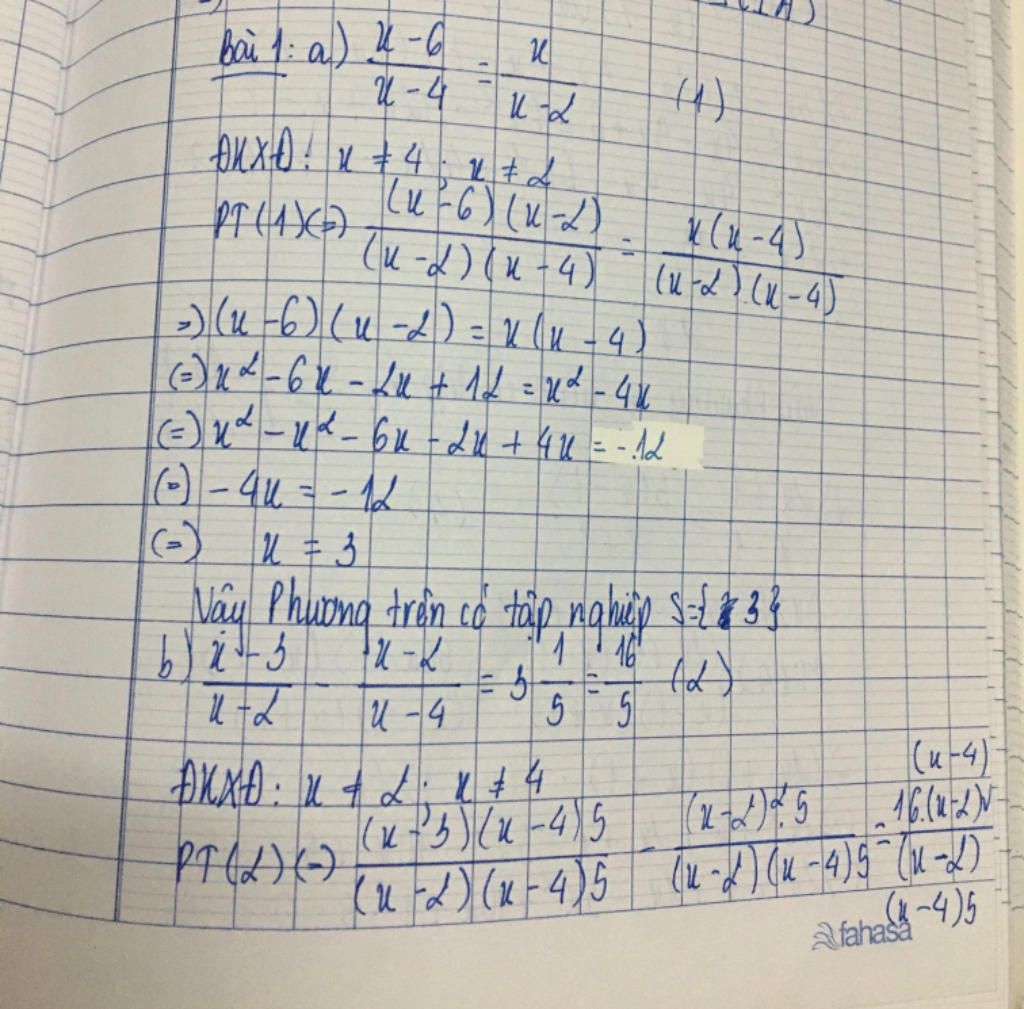 Bài 1: a) x-6/x-4 = x/x-2 (1)
ĐKXĐ: x ≠ 4; x ≠ 2
PT(1)(=) (x-6)(x-2)/(x-2)(x-4) = x(x-4)/(x-2).(x-4)
=) (x-6)(x-2) = x(x-4)
(=) x² - 6x - 2x + 12 = x² - 4x
(=) x² - x² - 6x - 2x + 4x = -12
(=) -4x = -12
(=) x = 3
Vậy Phương trên có tập nghiệp S={3}
b) x-3/x-2 - x-2/x-4 = 3 1/5 = 16/5 (2)
ĐKXĐ: x ≠ 2; x ≠ 4
PT(2)(=) (x-3)(x-4)5/(x-2)(x-4)5 - (x-2)².5/(x-2)(x-4)5 = 16.(x-2)(x-4)/(x-2)(x-4)5
fahasa